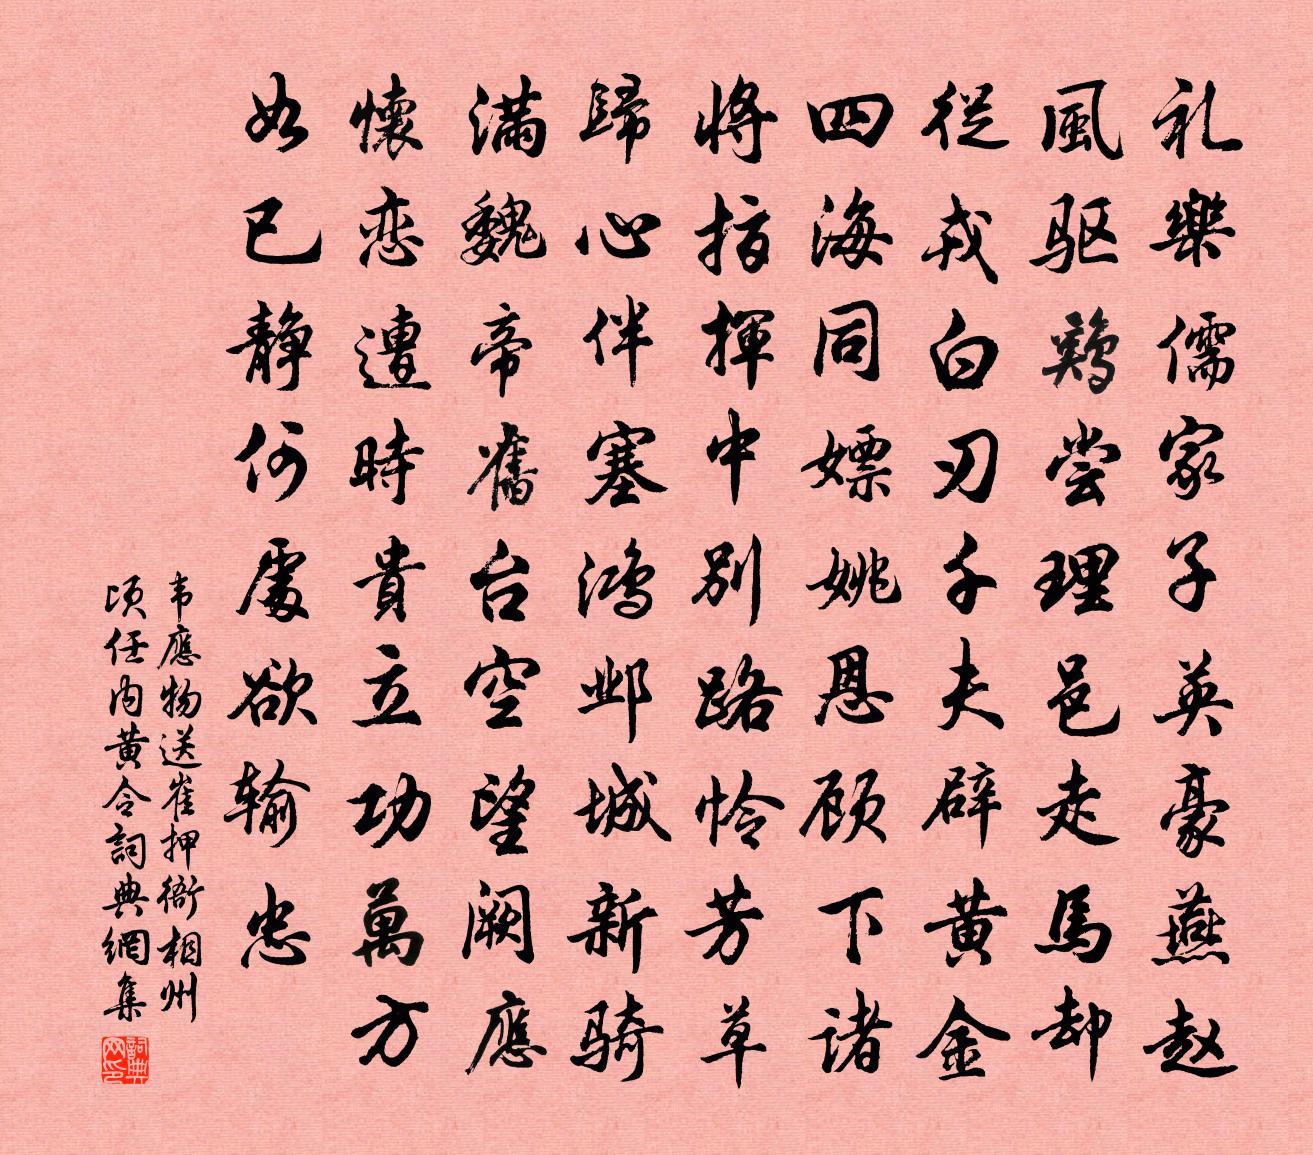 礼樂儒家子英豪燕赵
風驱鷄尝理邑走馬却
從戎白刃千夫辟黄金
四海同嫖姚恩顾下诸
将指揮中别路怜芳草
歸心伴塞鸿邺城新骑
满魏帝舊台空望阙應
懷恋遭時貴立功萬方
如已静何處欲输忠
韦應物送崔押衙相州
顷任内黄令詞典網集
詞典网印